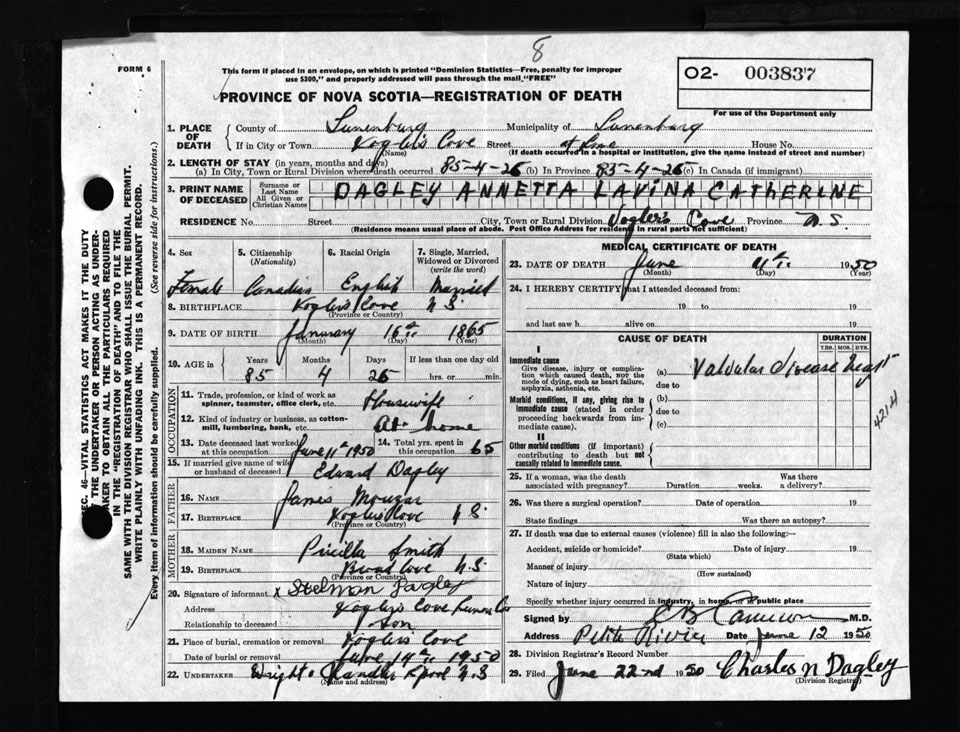 8
FORM 6
This form if placed in an envelope, on which is printed "Dominion Statistics—Free, penalty for improper
use $300," and properly addressed will pass through the mail, "FREE"
O2- 003837
PROVINCE OF NOVA SCOTIA—REGISTRATION OF DEATH
For use of the Department only
1. PLACE OF DEATH { County of Lunenburg Municipality of Lunenburg
If in City or Town Voglers Cove Street at home House No.
(Name) (If death occurred in a hospital or institution, give the name instead of street and number)
2. LENGTH OF STAY (in years, months and days)
(a) In City, Town or Rural Division where death occurred 85-4-26 (b) In Province 85-4-26 (c) In Canada (if immigrant)
3. PRINT NAME OF DECEASED { Surname or Last Name All Given or Christian Names DAGLEY ANNETTA LAVINA CATHERINE
RESIDENCE No. Street City, Town or Rural Division Vogler's Cove Province N.S.
(Residence means usual place of abode. Post Office Address for residents in rural parts not sufficient)
4. Sex 5. Citizenship (Nationality) 6. Racial Origin 7. Single, Married, Widowed or Divorced (write the word)
Female Canadian English Married
8. BIRTHPLACE Voglers Cove N.S.
(Province or Country)
9. DATE OF BIRTH January 16th 1865
(Month) (Day) (Year)
10. AGE in Years Months Days If less than one day old
85 4 25 hrs. or min.
OCCUPATION
11. Trade, profession, or kind of work as spinner, teamster, office clerk, etc. Housewife
12. Kind of industry or business, as cotton-mill, lumbering, bank, etc. At home
13. Date deceased last worked at this occupation June 11th 1950 14. Total yrs. spent in this occupation 65
15. If married give name of wife or husband of deceased Edward Dagley
FATHER
16. Name James
17. Birthplace Voglers Cove N.S.
(Province or Country)
MOTHER
18. Maiden Name Pricilla Smith
19. Birthplace Broad Cove N.S.
(Province or Country)
20. Signature of informant x Stelman Dagley
Address Voglers Cove Lunen Co
Relationship to deceased Son
21. Place of burial, cremation or removal Voglers Cove
Date of burial or removal June 14th 1950
22. UNDERTAKER Wright Lpool N.S.
(Name and address)
MEDICAL CERTIFICATE OF DEATH
23. DATE OF DEATH June 1950
(Month) (Day) (Year)
24. I HEREBY CERTIFY that I attended deceased from:
19 to 19
and last saw h alive on 19
CAUSE OF DEATH DURATION
YRS. MOS. DYS.
I
Immediate cause
Give disease, injury or complication which caused death, NOT the mode of dying, such as heart failure, asphyxia, asthenia, etc.
(a) Valvular disease heart
due to
Morbid conditions, if any, giving rise to immediate cause (stated in order proceeding backwards from immediate cause)
(b)
due to
(c)
4214
II
Other morbid conditions (if important) contributing to death but not causally related to immediate cause.
25. If a woman, was the death associated with pregnancy? Duration weeks. Was there a delivery?
26. Was there a surgical operation? Date of operation 19
State findings Was there an autopsy?
27. If death was due to external causes (violence) fill in also the following:—
Accident, suicide or homicide? Date of injury 19
(State which)
Manner of injury
(How sustained)
Nature of injury
Specify whether injury occurred in industry, in home, or in public place
Signed by C B Cameron M.D.
Address Petite Riviere Date June 12 1950
28. Division Registrar's Record Number
29. Filed June 22nd 1950 Charles N Dagley
(Division Registrar)
SEC. 46—VITAL STATISTICS ACT MAKES IT THE DUTY
THE UNDERTAKER OR PERSON ACTING AS UNDER-
TAKER TO OBTAIN ALL THE PARTICULARS REQUIRED
IN THE "REGISTRATION OF DEATH" AND TO FILE THE
SAME WITH THE DIVISION REGISTRAR WHO SHALL ISSUE THE BURIAL PERMIT.
WRITE PLAINLY WITH UNFADING INK. THIS IS A PERMANENT RECORD.
Every item of information should be carefully supplied. (See reverse side for instructions.)